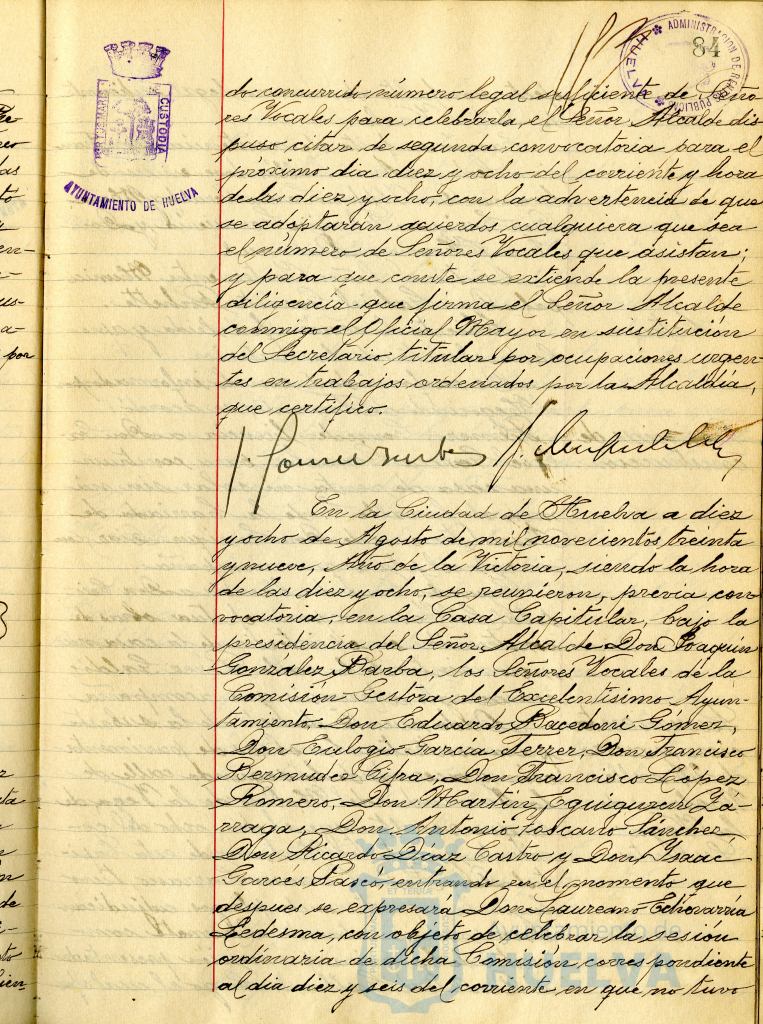 84
ADMINISTRACION DE RENTAS PUBLICAS
HUELVA
PORTUS MARIS
CUSTODIA
AYUNTAMIENTO DE HUELVA
do concurrido número legal suficiente de Seño
res Vocales para celebrarla el Señor Alcalde dis
puso citar de segunda convocatoria para el
próximo dia diez y ocho del corriente y hora
de las diez y ocho, con la advertencia de que
se adoptarán acuerdos cualquiera que sea
el número de Señores Vocales que asistan;
y para que conste se extiende la presente
diligencia que firma el Señor Alcalde
conmigo el Oficial Mayor en sustitucion
del Secretario titular por ocupaciones urgen-
tes en trabajos ordenados por la Alcaldia,
que certifico.
En la Ciudad de Huelva a diez
y ocho de Agosto de mil novecientos treinta
y nueve, Año de la Victoria, siendo la hora
de las diez y ocho, se reunieron, previa con
vocatoria, en la Casa Capitular, bajo la
presidencia del Señor Alcalde Don Joaquin
Gonzalez Barba, los Señores Vocales de la
Comisión Gestora del Excelentisimo Ayun-
tamiento, Don Eduardo Bacedoni Gomez,
Don Eulogio Garcia Ferrer, Don Francisco
Bermudez Cifra, Don Francisco López
Romero, Don Martin Eguiguren Zá-
rraga, Don Antonio Toscano Sánchez,
Don Ricardo Diaz Castro y Don Ysaac
Garcés Pascó, entrando en el momento que
despues se expresará Don Laureano Echevarria
Ledesma, con objeto de celebrar la sesión
ordinaria de dicha Comisión correspondiente
al dia diez y seis del corriente, en que no tuvo
Ayuntamiento de
HUELVA